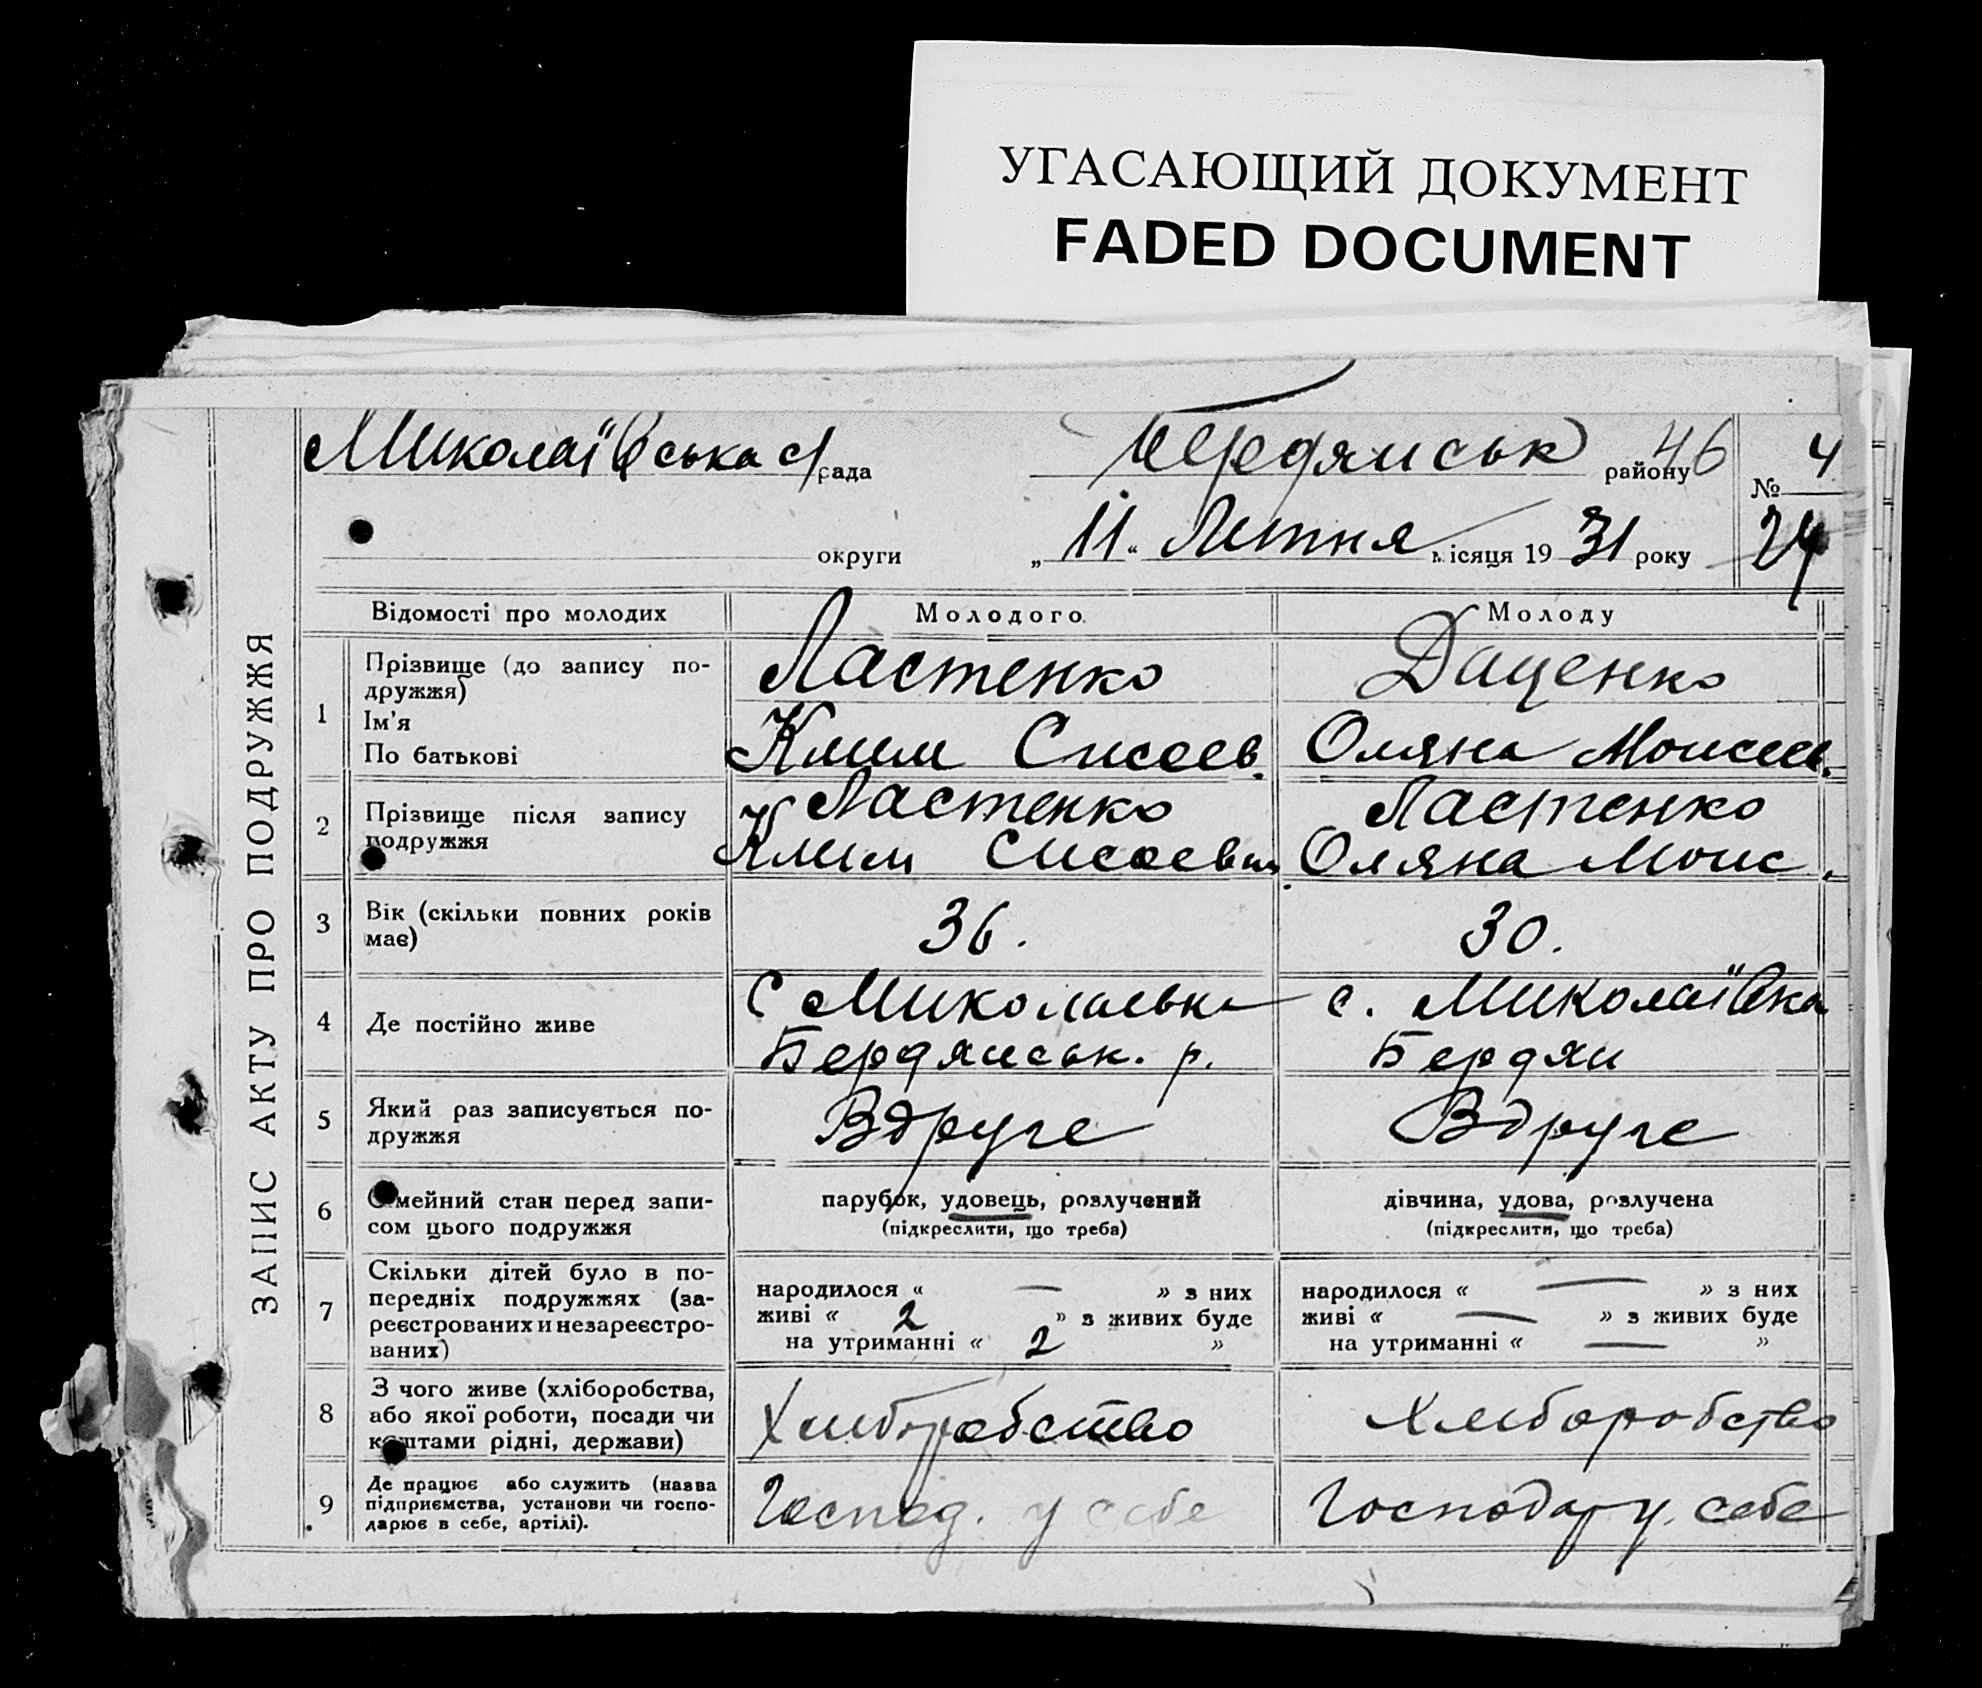 УГАСАЮЩИЙ ДОКУМЕНТ
FADED DOCUMENT
ЗАПИС АКТУ ПРО ПОДРУЖЖЯ
Миколаївська с/рада Бердянськ району 46 № 4
округи „11“ Лютня місяця 1931 року 24
Відомості про молодих Молодого Молоду
1 Прізвище (до запису подружжя) Ластенко Даценко
Ім'я
По батькові Клим Сисоев. Оляна Моисеев.
2 Прізвище після запису подружжя Ластенко Ластенко
Клим Сисоевич Оляна Моис.
3 Вік (скільки повних років має) 36. 30.
4 Де постійно живе С Миколаевка с. Миколаївка
Бердянськ. р. Бердян
5 Який раз записується подружжя Вдруге Вдруге
6 Сімейний стан перед записом цього подружжя парубок, удовець, розлучений дівчина, удова, розлучена
(підкреслити, що треба) (підкреслити, що треба)
7 Скільки дітей було в попередніх подружжях (зареєстрованих и незареєстрованих) народилося « — » з них народилося « — » з них
живі « 2 » з живих буде живі « — » з живих буде
на утриманні « 2 » на утриманні « — »
8 З чого живе (хліборобства, або якої роботи, посади чи коштами рідні, держави) Хлиборобство Хлиборобство
9 Де працює або служить (назва підприємства, установи чи господарює в себе, артілі). Господ. у себе Господар у себе